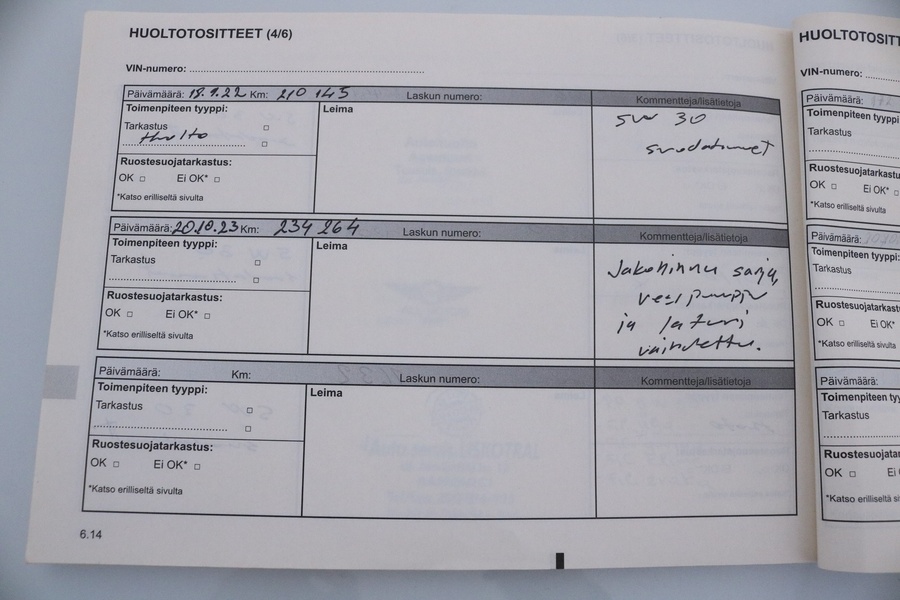 HUOLTOTOSITTEET (4/6)
VIN-numero:
Päivämäärä: 18.1.22 Km: 210 145 Laskun numero: Kommentteja/lisätietoja
Toimenpiteen tyyppi: Leima 5w 30
Tarkastus suodattimet
Huolto
Ruostesuojatarkastus:
OK Ei OK*
*Katso erilliseltä sivulta
Päivämäärä: 20.10.23 Km: 234 264 Laskun numero: Kommentteja/lisätietoja
Toimenpiteen tyyppi: Leima Jakohihna sarja,
Tarkastus vesipumppu
ja laturi
Ruostesuojatarkastus: vaihdettu.
OK Ei OK*
*Katso erilliseltä sivulta
Päivämäärä: Km: Laskun numero: Kommentteja/lisätietoja
Toimenpiteen tyyppi: Leima
Tarkastus
Ruostesuojatarkastus:
OK Ei OK*
*Katso erilliseltä sivulta
6.14
HUOLTOTOSITT
VIN-numero:
Päivämäärä:
Toimenpiteen tyyppi
Tarkastus
Ruostesuojatarkastu
OK Ei OK*
*Katso erilliseltä sivulta
Päivämäärä:
Toimenpiteen typpe
Tarkastus
Ruostesuojatarkas
OK Ei OK*
*Katso erilliseltä sivulta
Päivämäärä:
Toimenpiteen ty
Tarkastus
Ruostesuojatar
OK Ei
*Katso erilliseltä si